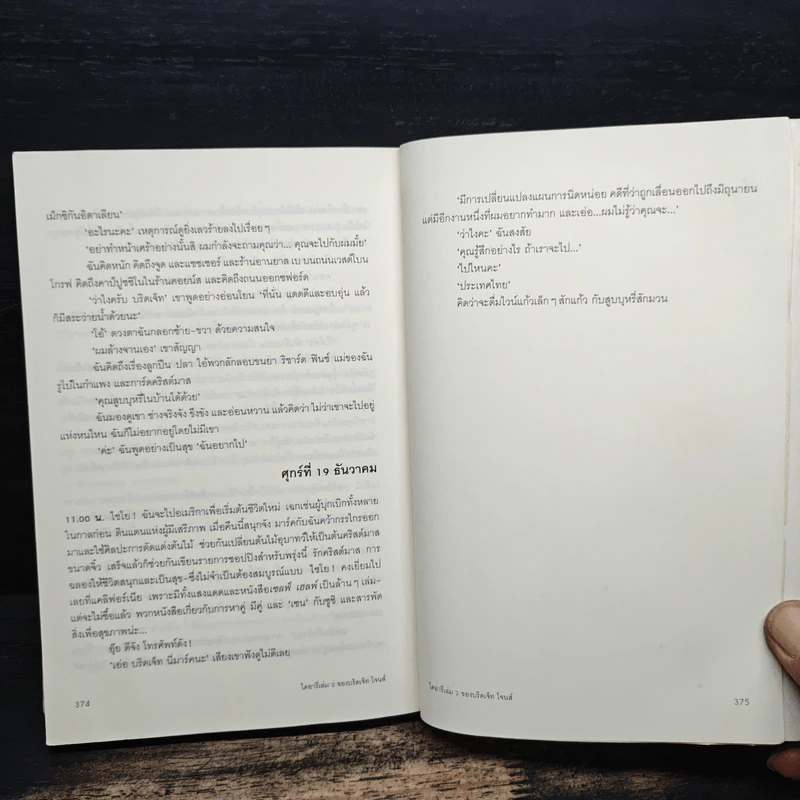 เม็กซิกันอิตาเลียน'
'อะไรนะคะ' เหตุการณ์ดูยิ่งเลวร้ายลงไปเรื่อยๆ
'อย่าทำหน้าเศร้าอย่างนั้นสิ ผมกำลังจะถามคุณว่า... คุณจะไปกับผมมั้ย'
ฉันคิดหนัก คิดถึงจูด และแชซเซอร์ และร้านอานยาส เบ บนถนนเวสต์โบน
โกรฟ คิดถึงคาปูชชิโนในร้านคอยน์ส และคิดถึงถนนออกซฟอร์ด
'ว่าไงครับ บริดเจ็ท' เขาพูดอย่างอ่อนโยน 'ที่นั่น แดดดีและอบอุ่น แล้ว
ก็มีสระว่ายน้ำด้วยนะ'
'โอ้' ดวงตาฉันกลอกซ้าย-ขวา ด้วยความสนใจ
'ผมล้างจานเอง' เขาสัญญา
ฉันคิดถึงเรื่องลูกปืน ปลา ไอ้พวกลักลอบขนยา ริชาร์ด ฟินช์ แม่ของฉัน
รูโบ๋ในกำแพง และการ์ดคริสต์มาส
'คุณสูบบุหรี่ในบ้านได้ด้วย'
ฉันมองดูเขา ช่างจริงจัง ขึงขัง และอ่อนหวาน แล้วคิดว่า ไม่ว่าเขาจะไปอยู่
แห่งหนไหน ฉันก็ไม่อยากอยู่โดยไม่มีเขา
'ค่ะ' ฉันพูดอย่างเป็นสุข 'ฉันอยากไป'
ศุกร์ที่ 19 ธันวาคม
11.00 น. ไชโย! ฉันจะไปอเมริกาเพื่อเริ่มต้นชีวิตใหม่ เฉกเช่นผู้บุกเบิกทั้งหลาย
ในกาลก่อน ดินแดนแห่งผู้มีเสรีภาพ เมื่อคืนนี้สนุกจัง มาร์คกับฉันคว้ากรรไกรออก
มาและใช้ศิลปะการตัดแต่งต้นไม้ ช่วยกันเปลี่ยนต้นไม้อุบาทว์ให้เป็นต้นคริสต์มาส
ขนาดจิ๋ว เสร็จแล้วก็ช่วยกันเขียนรายการชอปปิงสำหรับพรุ่งนี้ รักคริสต์มาส การ
ฉลองให้ชีวิตสนุกและเป็นสุข-ซึ่งไม่จำเป็นต้องสมบูรณ์แบบ ไชโย! คงเยี่ยมไป
เลยที่แคลิฟอร์เนีย เพราะมีทั้งแสงแดดและหนังสือเซลฟ์ เฮลพ์ เป็นล้านๆ เล่ม-
แต่จะไม่ซื้อแล้ว พวกหนังสือเกี่ยวกับการหาคู่ มีคู่ และ 'เซน' กับซูชิ และสารพัด
สิ่งเพื่อสุขภาพน่ะ...
อุ๊ย ดีจัง โทรศัพท์ดัง!
'เอ่อ บริดเจ็ท นี่มาร์คนะ' เสียงเขาฟังดูไม่ดีเลย
ไดอารี่เล่ม 2 ของบริดเจ็ท โจนส์
374
'มีการเปลี่ยนแปลงแผนการนิดหน่อย คดีที่ว่าถูกเลื่อนออกไปถึงมิถุนายน
แต่มีอีกงานหนึ่งที่ผมอยากทำมาก และเอ่อ...ผมไม่รู้ว่าคุณจะ...'
'ว่าไงคะ' ฉันสงสัย
'คุณรู้สึกอย่างไร ถ้าเราจะไป...'
'ไปไหนคะ'
'ประเทศไทย'
คิดว่าจะดื่มไวน์แก้วเล็กๆ สักแก้ว กับสูบบุหรี่สักมวน
ไดอารี่เล่ม 2 ของบริดเจ็ท โจนส์
375